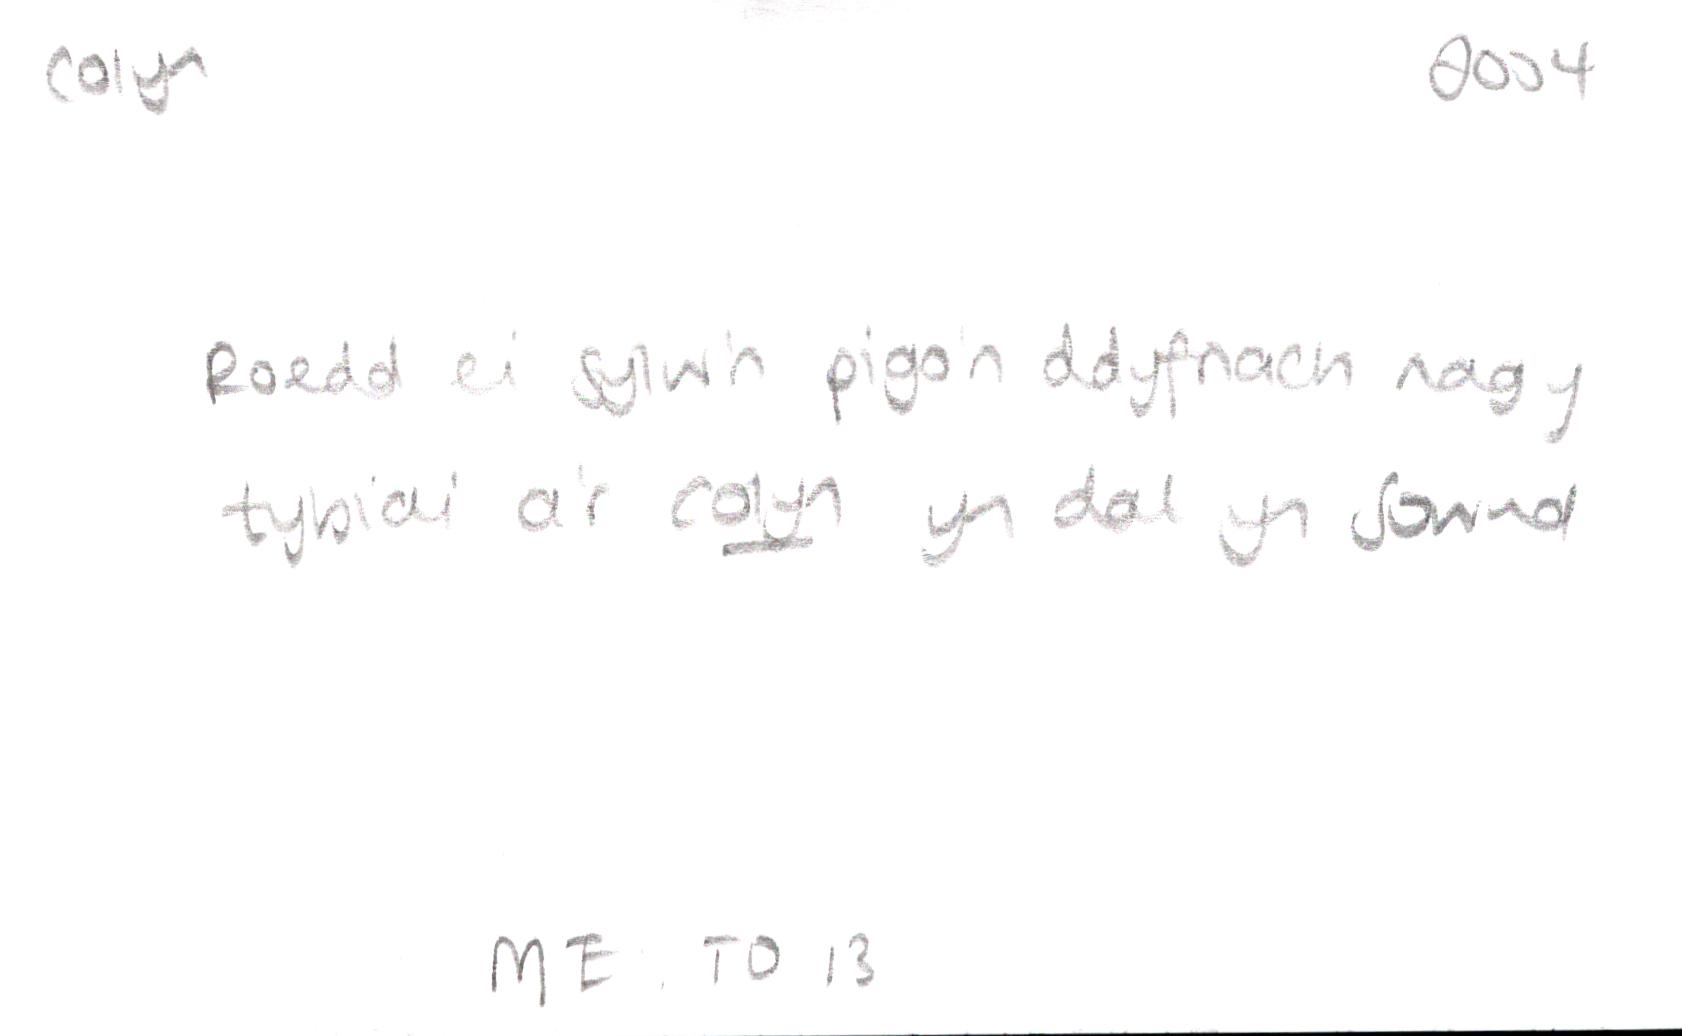 colyn 2004
Roedd ei sylw'n pigo'n ddyfnach nag y
tybiai a'r colyn yn dal yn sownd
ME: TO 13